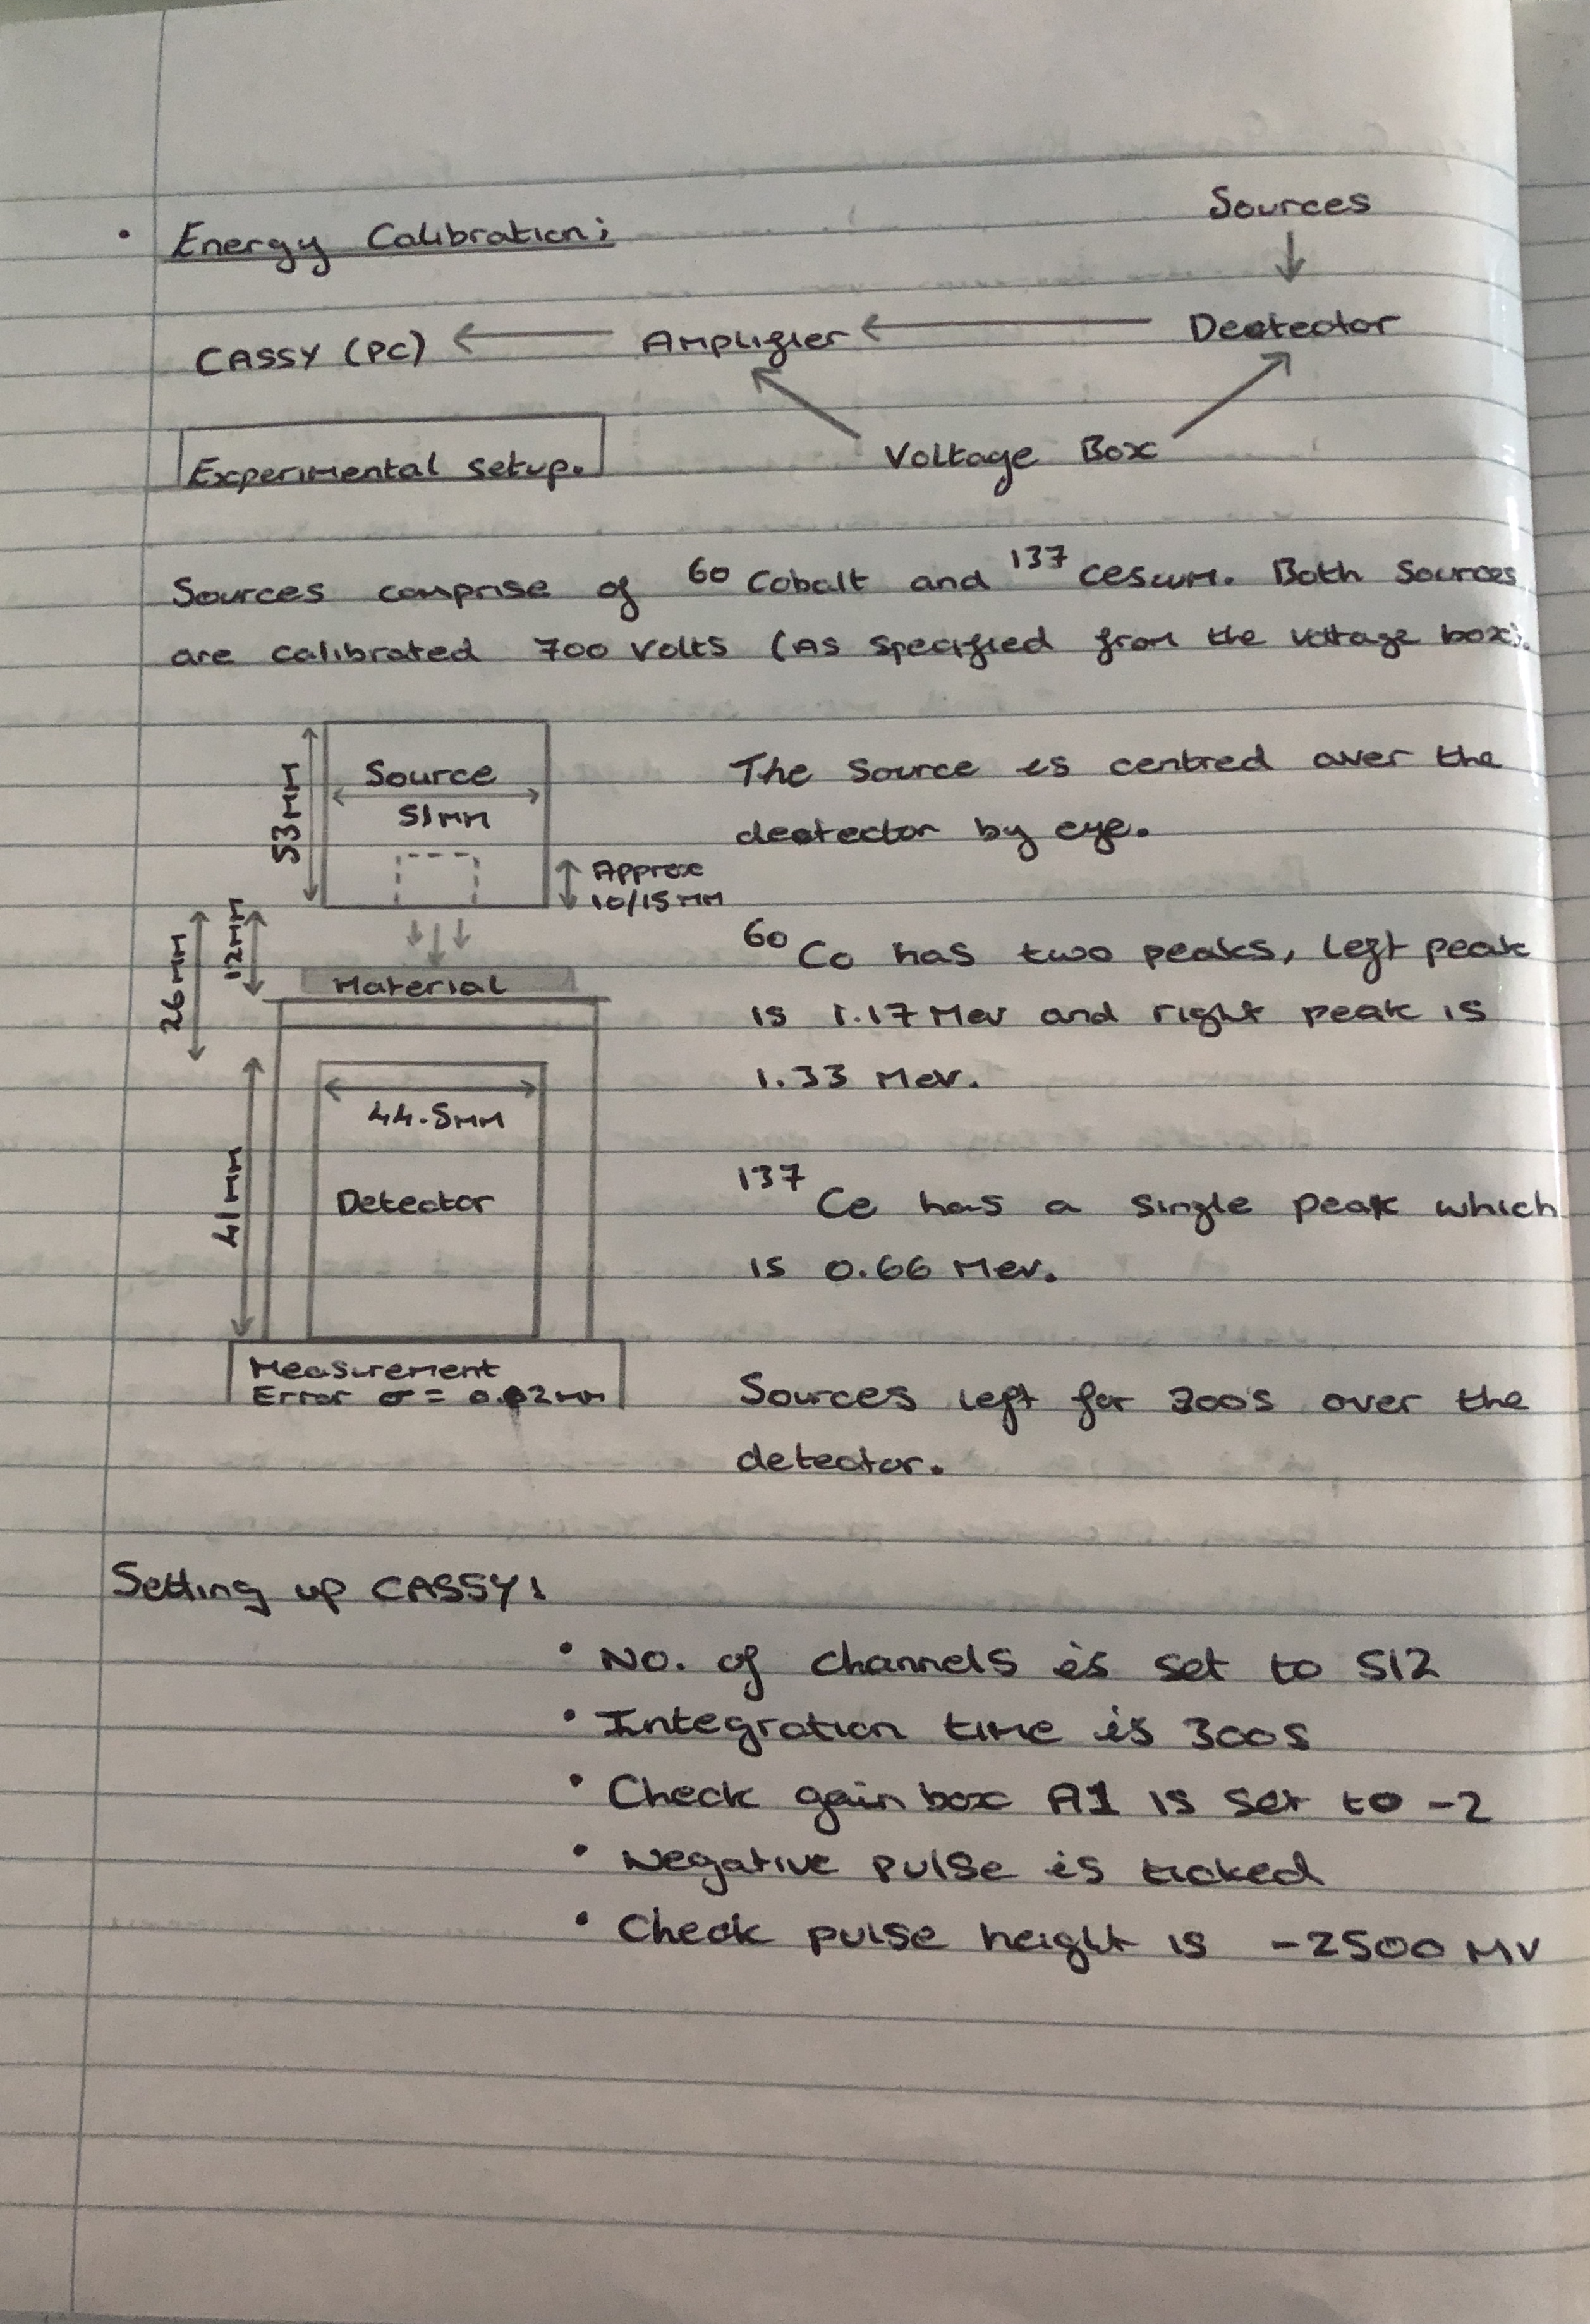 • Energy Calibration;
Sources
CASSY (PC) ← Amplifier ← Deetector
Voltage Box
Experimental setup.
Sources comprise of ⁶⁰Cobalt and ¹³⁷cesium. Both sources
are calibrated 700 volts (As specified from the voltage box).
Source
51mm
53mm
Approx
10/15mm
12mm
26mm
Material
44.5mm
41mm
Detector
Measurement
Error σ = 0.02mm
The source is centred over the
deetector by eye.
⁶⁰Co has two peaks, left peak
is 1.17 Mev and right peak is
1.33 Mev.
¹³⁷Ce has a single peak which
is 0.66 Mev.
Sources left for 300's over the
detector.
Setting up CASSY:
• No. of channels is set to 512
• Integration time is 300s
• Check gain box A1 is set to -2
• Negative pulse is ticked
• Check pulse height is -2500 MV